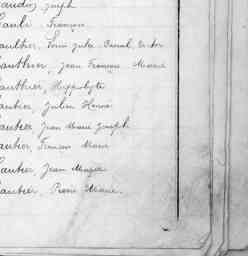 audin, Joseph
Gault, François
Gaultier, Louis Jules Pascal Victor
Gauthier, Jean François Marie
Gauthier, Hyppolyte
Gautier Julien
Gautier Jean Marie Joseph
Gautier, François Marie
Gautier, Jean Marie
Gautier, Pierre Marie.